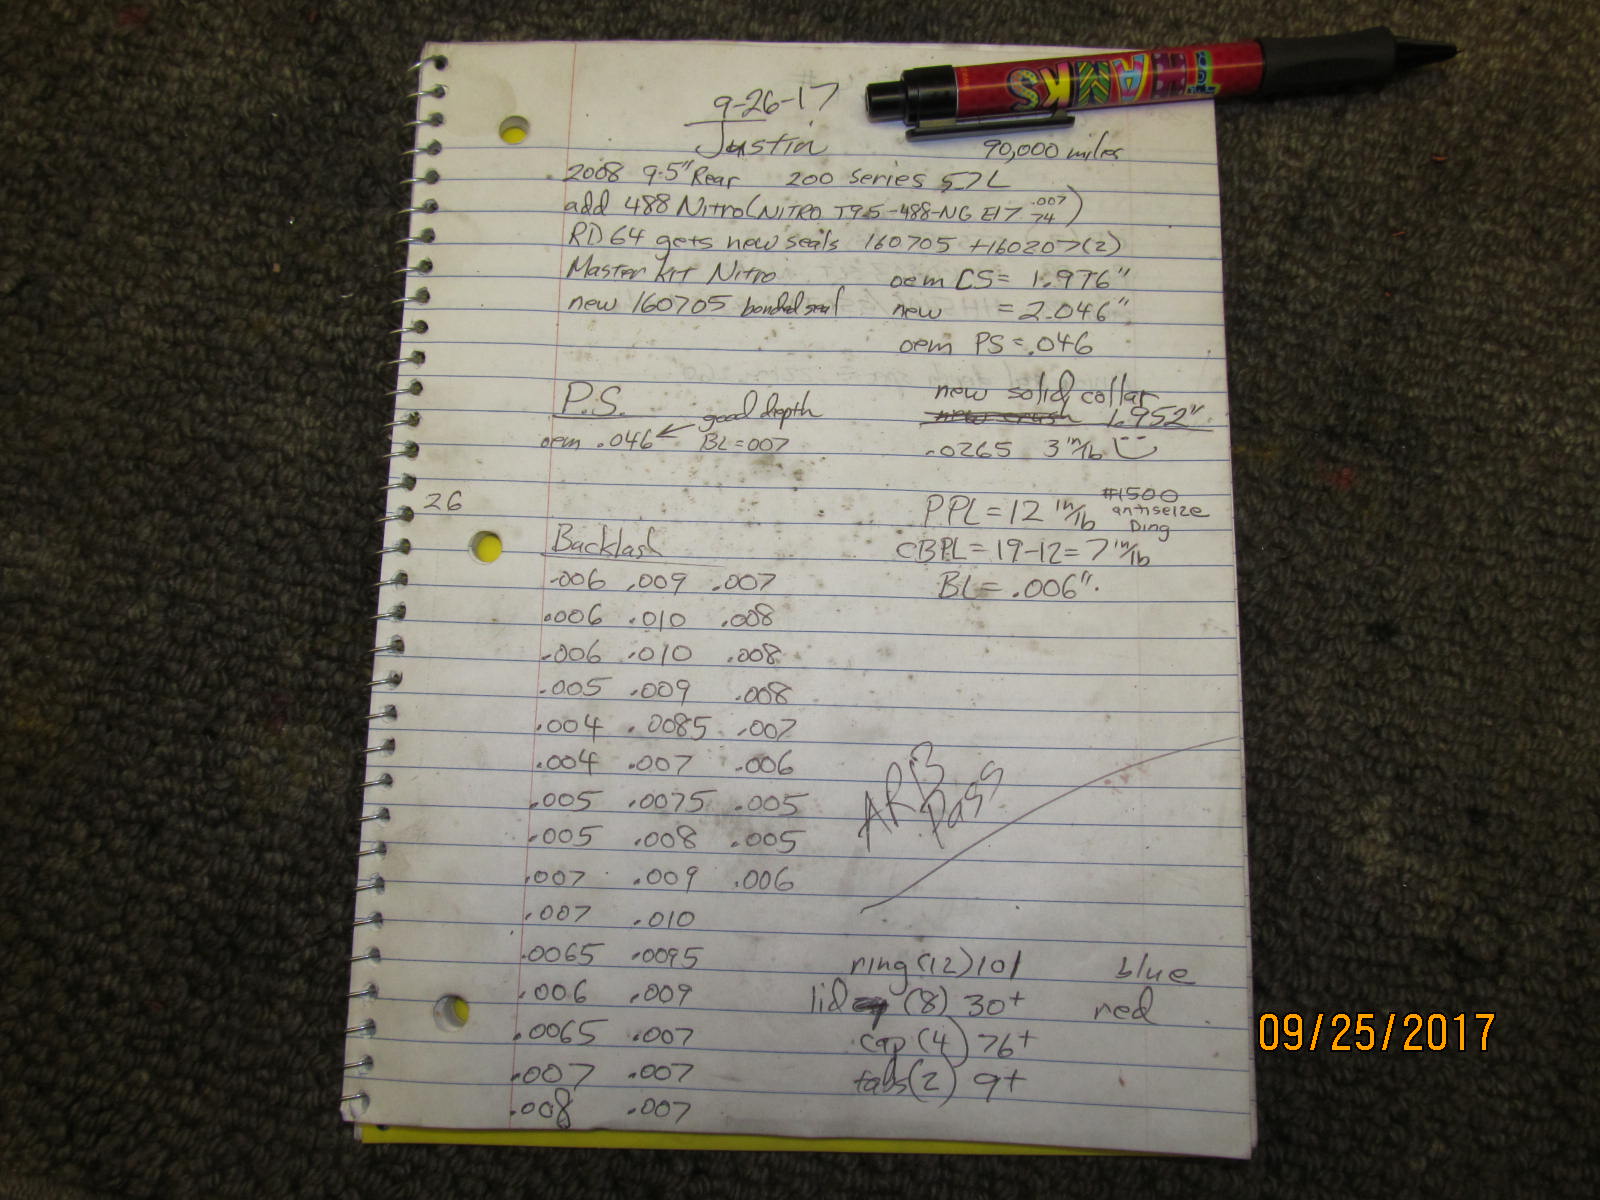 THANKS
9-26-17
Justin 90,000 miles
2008 9.5" Rear 200 series 5.7L
add 488 Nitro (NITRO T9.5-488-NG E17 .007 74)
RD64 gets new seals 160705 + 160207(2)
Master kit Nitro oem CS= 1.976"
new 160705 bonded seal new = 2.046"
oem PS = .046
P.S. good depth new solid collar
new crush 1.952"
oem .046 BL=007 .0265 3 in/lb
26
PPL = 12 in/lb #1500 antiseize Ding
Backlash CBPL = 19-12 = 7 in/lb
.006 .009 .007 BL= .006".
.006 .010 .008
.006 .010 .008
.005 .009 .008
.004 .0085 .007
.004 .007 .006
.005 .0075 .005
.005 .008 .005
.007 .009 .006
ARB Pass
.007 .010
.0065 .0095 ring (12) 101 blue
.006 .009 lid (8) 30+ red
.0065 .007 cap (4) 76+
.007 .007 tabs (2) 9+
.008 .007
09/25/2017